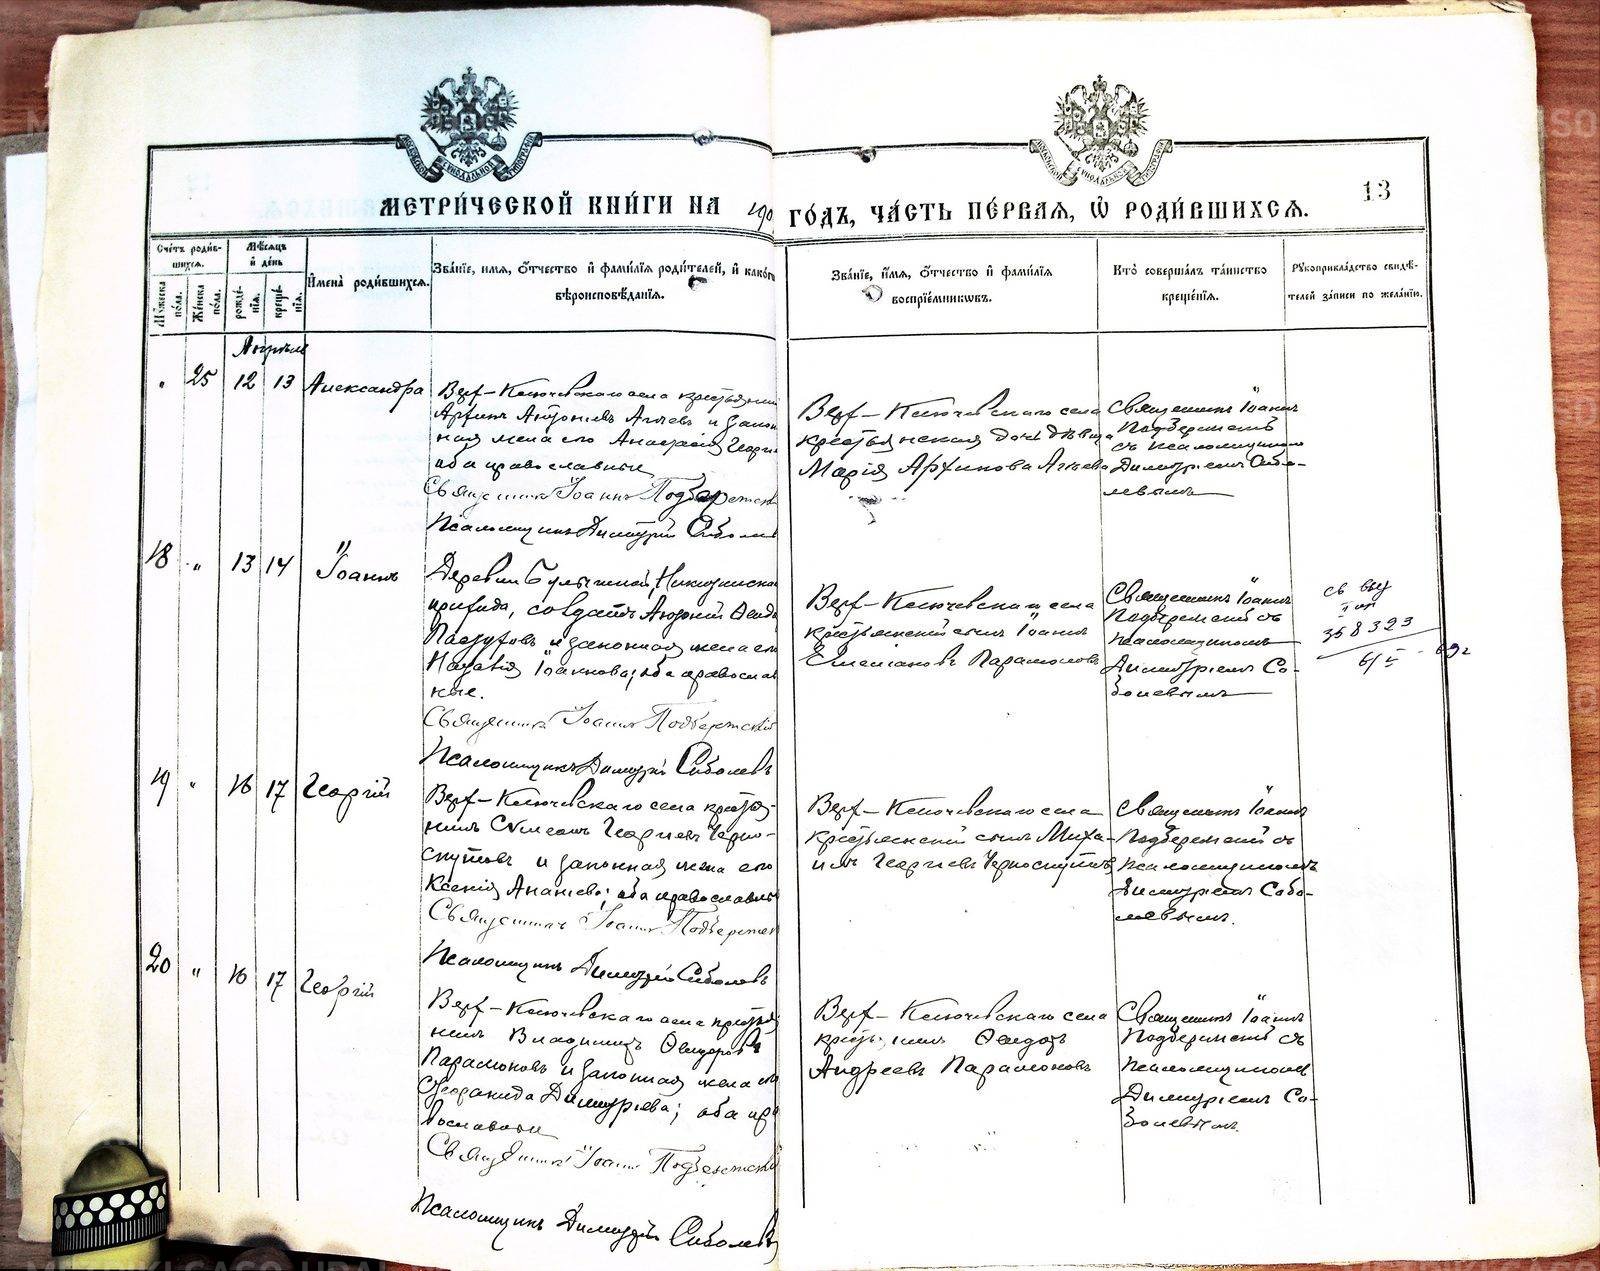 МЕТРИ́ЧЕСКОЙ КНИ́ГИ НА 190 ГО́ДЪ, ЧА́СТЬ ПЕ́РВАЯ, Ѡ РОДИ́ВШИХСЯ.
13
Сче́тъ роди́в-
шихся.
Му́жеска по́ла.
Же́нска по́ла.
Мѣ́сяцъ
и де́нь
рожде́-
нія.
креще́-
нія.
И́мена̀ роди́вшихся.
Зва́ніе, имя, о́тчество и фами́лія роди́телей, и како́гѡ
вѣроисповѣ́данія.
Зва́ніе, и́мя, о́тчество и фами́лія
воспріе́мникѡвъ.
Кто̀ соверша́лъ та́инство
креще́нія.
Рукоприкла́дство свидѣ́-
телей за́писи по жела́нію.
Апрѣль
" 25 12 13 Александра
Верх-Ключевскаго села крестьянин
Архипъ Агѣевъ и закон
ная жена его Анастасія Георги
оба православные
Священникъ Іоаннъ Подбереж
Псаломщикъ Димитрій Соболев
Верх-Ключевскаго села
крестьянская дочь дѣвица
Марія Архипова Агѣева
Священникъ Іоаннъ
Подбережскій
съ псаломщикомъ
Димитріемъ Собо-
левымъ
18 " 13 14 Іоаннъ
Деревни
прихода, солдатъ
и законная жена его
Наталія Іоаннова; оба православ
ные.
Священникъ Іоаннъ Подбережскій
Псаломщикъ Димитрій Соболевъ
Верх-Ключевскаго села
крестьянскій сынъ Іоаннъ
Емельяновъ Парамоновъ
Священникъ Іоаннъ
Подбережскій съ
псаломщикомъ
Димитріемъ Со-
болевымъ
358323
19 " 16 17 Георгій
Верх-Ключевскаго села кресть-
нинъ Симеонъ Георгіевъ Черно-
скутовъ и законная жена его
Ксенія Ананіева; оба православны
Священникъ Іоаннъ Подбереж
Псаломщикъ Димитрій Соболевъ
Верх-Ключевскаго села
крестьянскій сынъ Миха-
илъ Георгіевъ Черноскутовъ
Священникъ Іоаннъ
Подбережскій съ
псаломщикомъ
Димитріемъ Собо-
левымъ.
20 " 16 17 Георгій
Верх-Ключевскаго села крестья
нинъ Владимиръ Ѳеодоровъ
Парамоновъ и законная жена его
Димитріева; оба пра
вославные
Священникъ Іоаннъ Подбережскій
Псаломщикъ Димитрій Соболевъ
Верх-Ключевскаго села
крестьянинъ Ѳеодоръ
Андреевъ Парамоновъ
Священникъ Іоаннъ
Подбережскій съ
псаломщикомъ
Димитріемъ Со-
болевымъ.